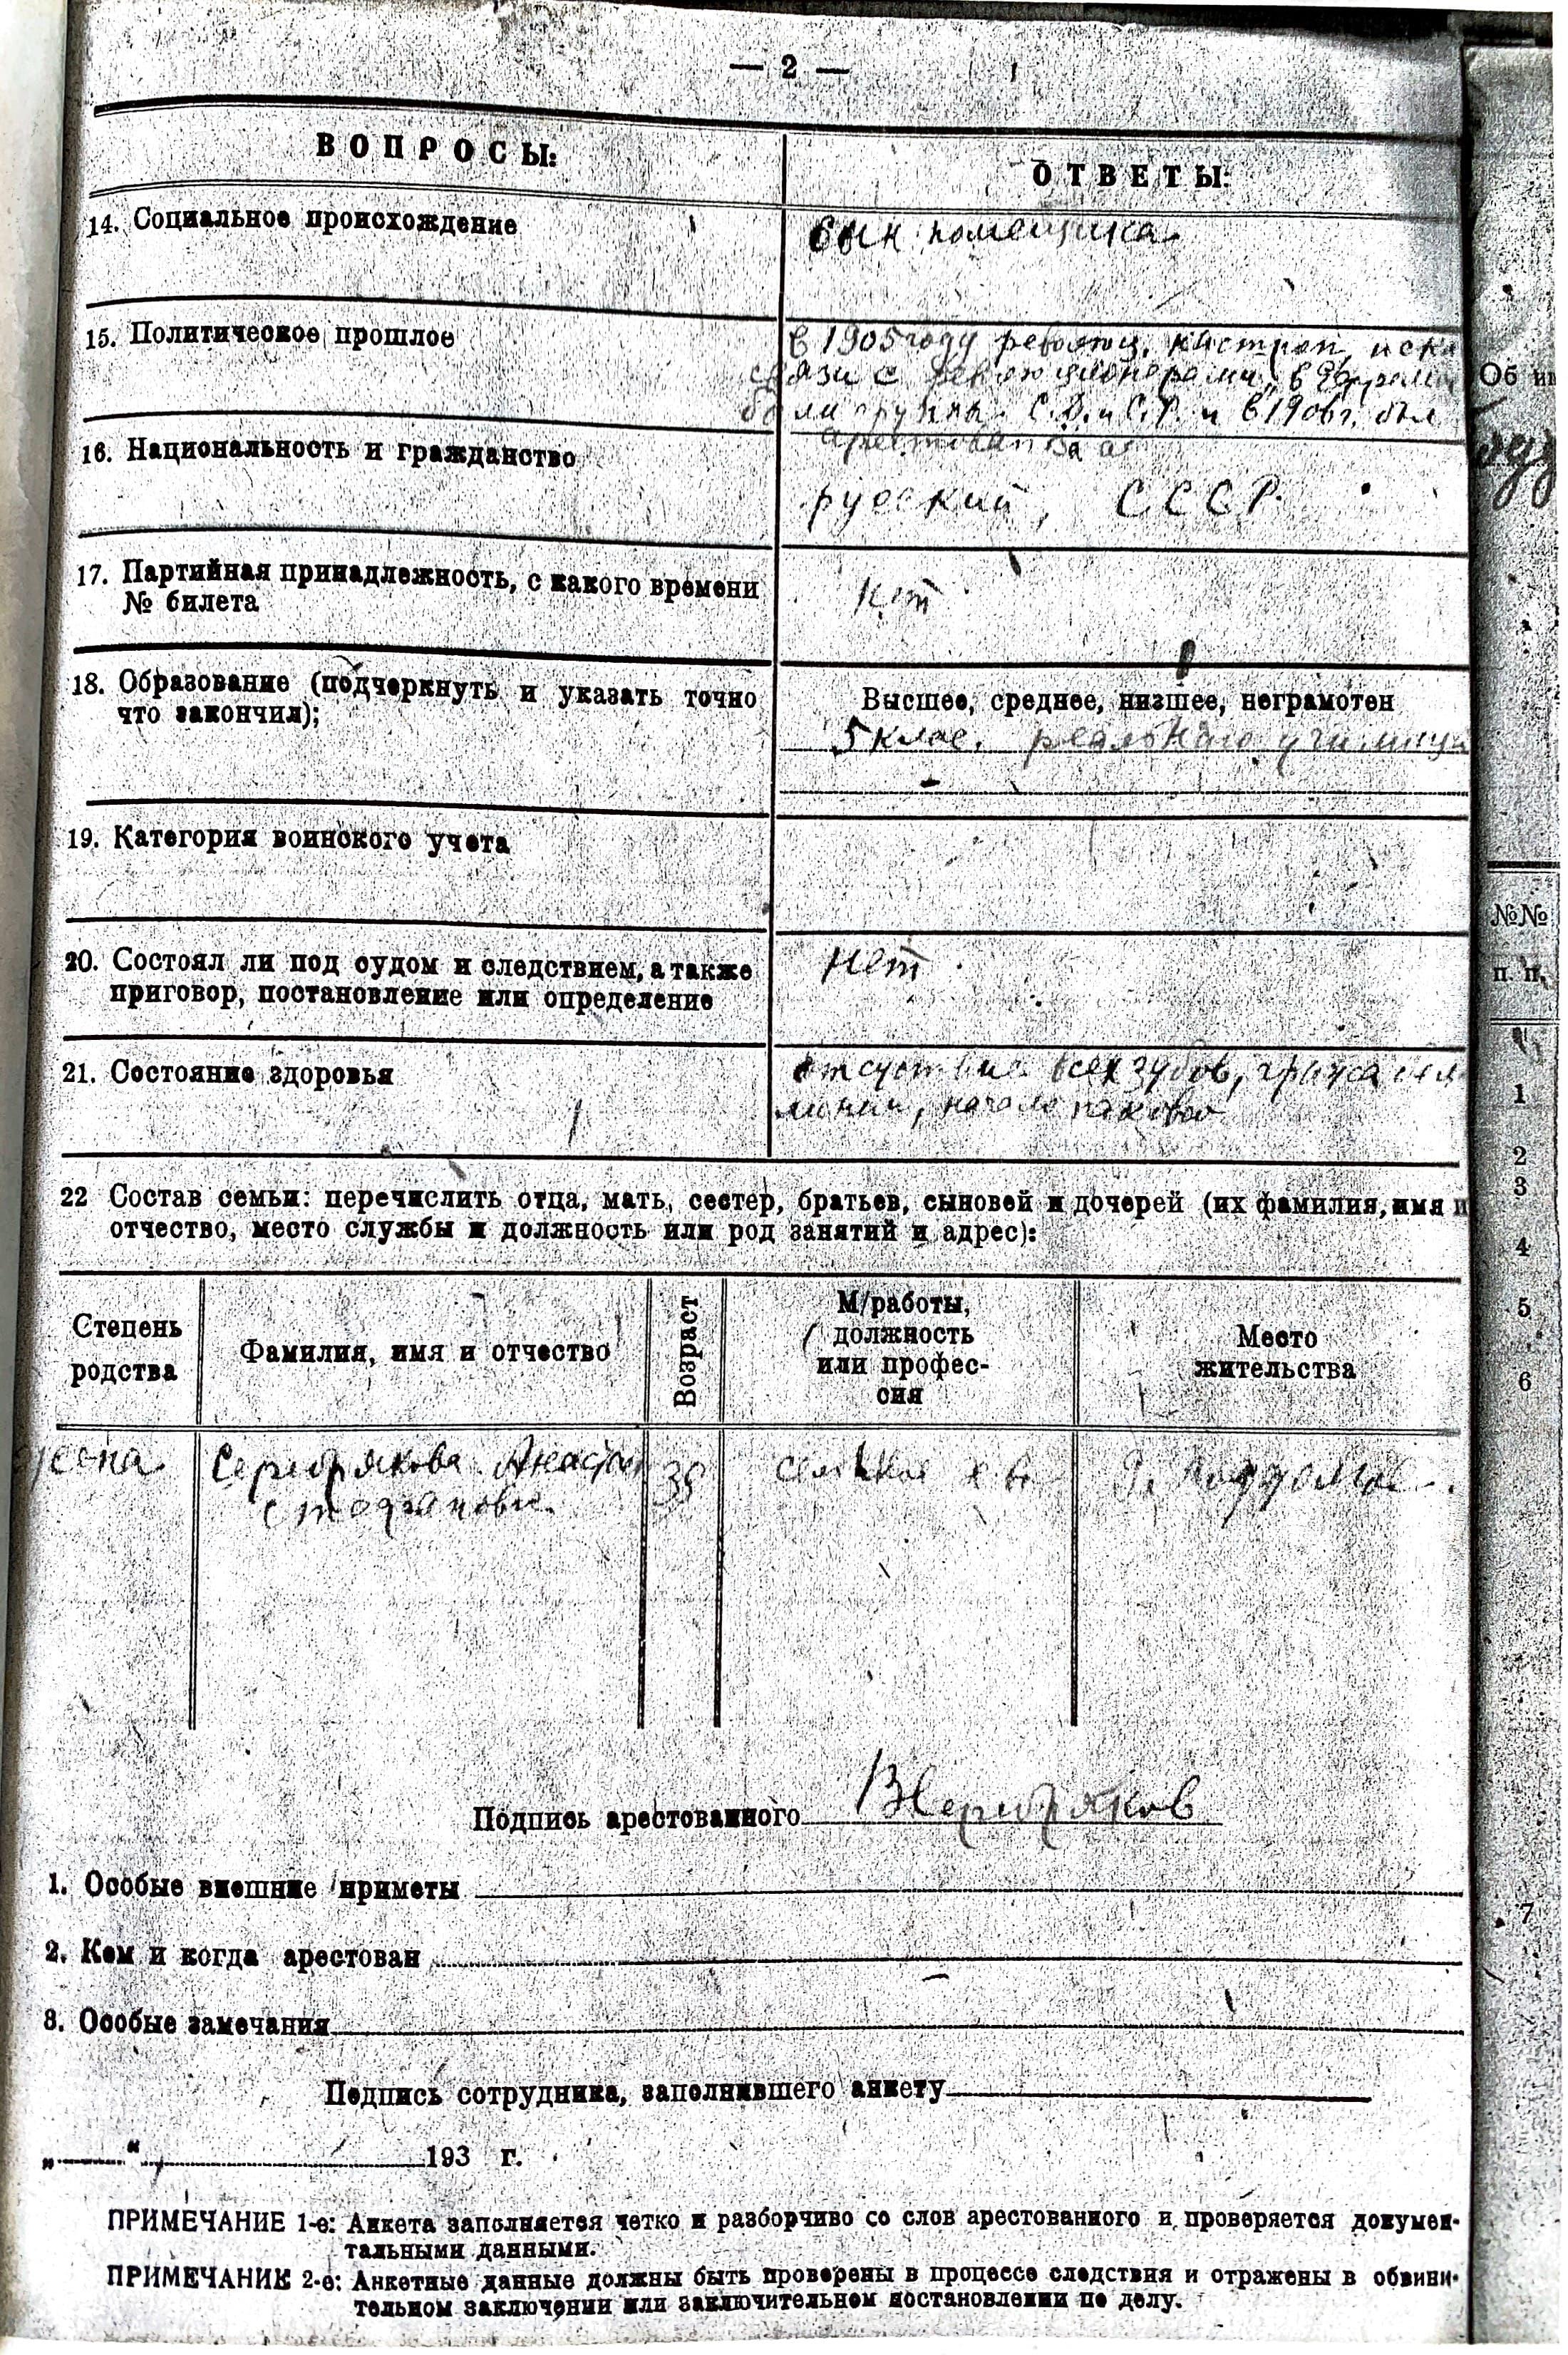 — 2 —
ВОПРОСЫ:
ОТВЕТЫ:
14. Социальное происхождение
сын помещика
15. Политическое прошлое
в 1905 году революц.
связи с революционерами, в
были группы С.Д. и С.Р. и в 1906 г. был
арестован за
16. Национальность и гражданство
русский, СССР.
17. Партийная принадлежность, с какого времени
№ билета
Нет
18. Образование (подчеркнуть и указать точно
что закончил);
Высшее, среднее, низшее, неграмотен
5 клас. реального училища
19. Категория воинского учета
20. Состоял ли под судом и следствием, а также
приговор, постановление или определение
Нет
21. Состояние здоровья
отсутствие всех зубов, грыжа
линии, начало паховой
22 Состав семьи: перечислить отца, мать, сестер, братьев, сыновей и дочерей (их фамилия, имя и
отчество, место службы и должность или род занятий и адрес):
Степень
родства
Фамилия, имя и отчество
Возраст
М/работы,
должность
или профес-
сия
Место
жительства
жена
Серебрякова
35
Подпись арестованного
ВСеребряков
1. Особые внешние приметы
2. Кем и когда арестован
3. Особые замечания
Подпись сотрудника, заполнившего анкету
„ “ 193 г.
ПРИМЕЧАНИЕ 1-е: Анкета заполняется четко и разборчиво со слов арестованного и проверяется докумен-
тальными данными.
ПРИМЕЧАНИЕ 2-е: Анкетные данные должны быть проверены в процессе следствия и отражены в обвини-
тельном заключении или заключительном постановлении по делу.
Об
№№
п. п.
1
2
3
4
5
6
7